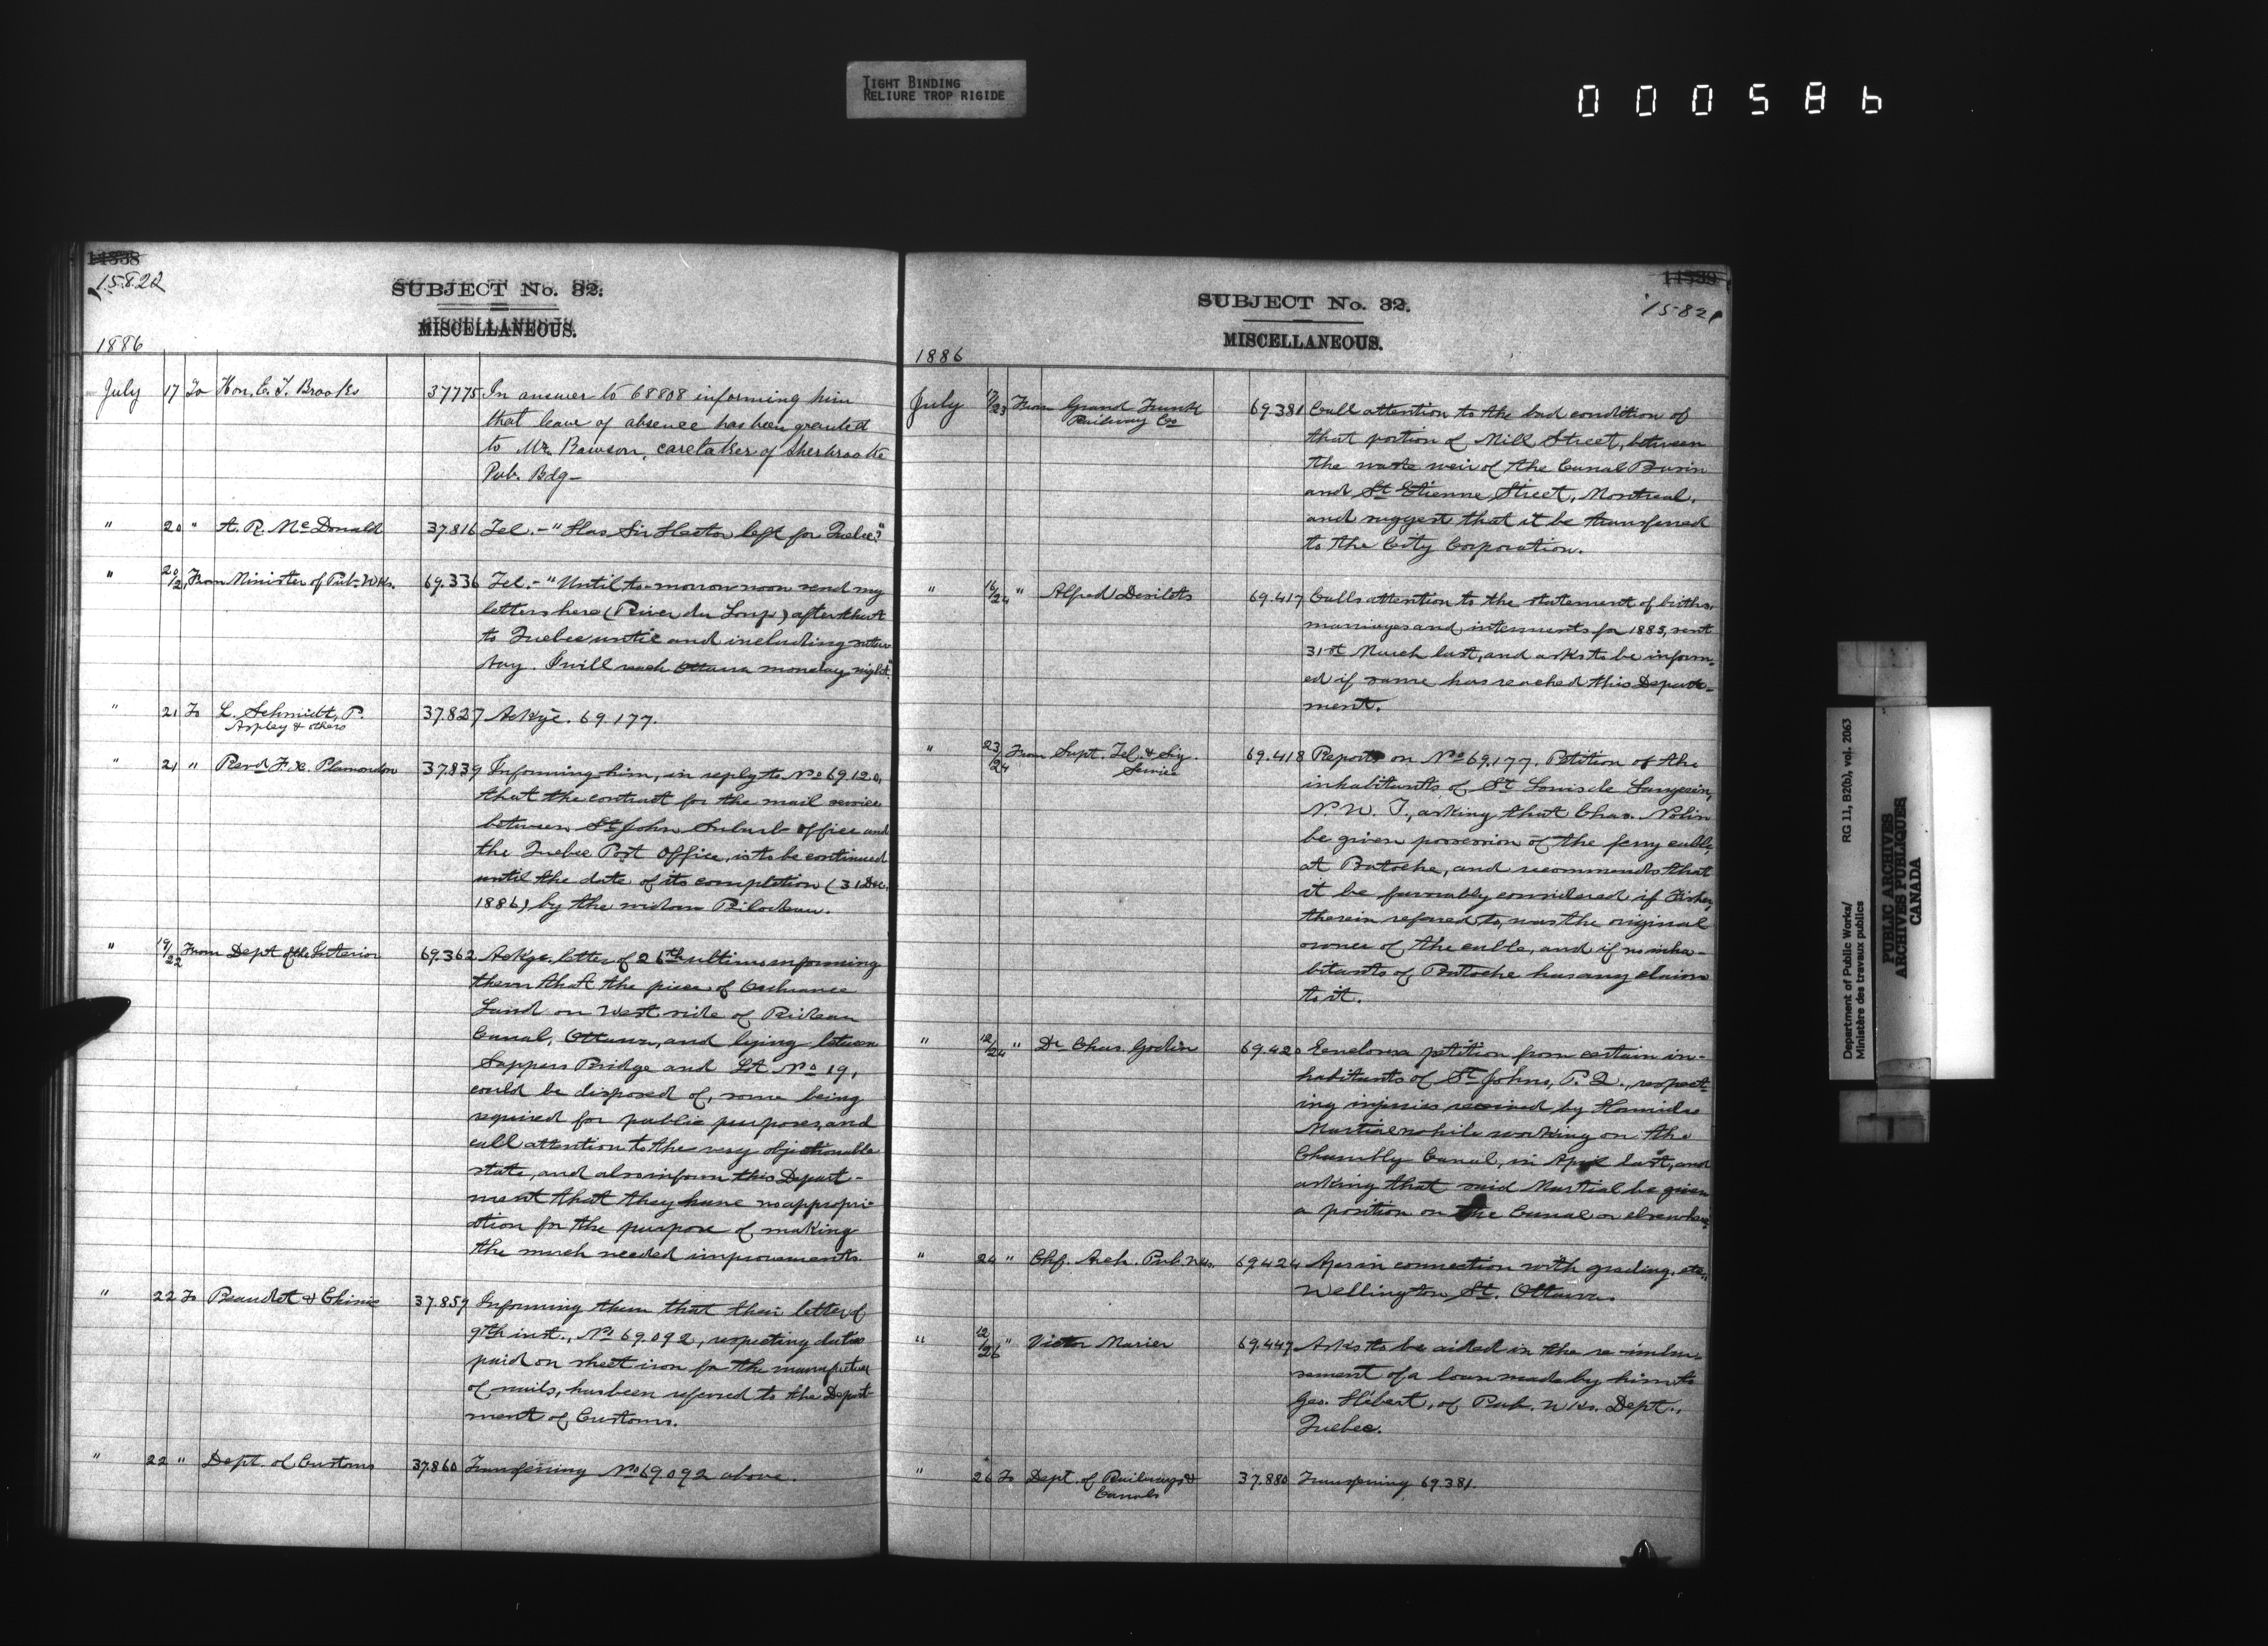 TIGHT BINDING
RELIURE TROP RIGIDE
000586
14338
15822
SUBJECT No. 32.
MISCELLANEOUS.
1886
July 17 To Hon. E. T. Brooks 37775 In answer to 68808 informing him
that leave of absence has been granted
to Mr. Rawson, caretaker of Sherbrooke
Pub. Bdg—
" 20 " A. R. McDonald 37.816 Tel. - "Has Sir Hector left for Quebec?"
" 20/21 From Minister of Pub. Wks. 69.336 Tel. - "Until to-morrow noon send my
letters here (River du Loup) after that
to Quebec until and including satur
day. I will reach Ottawa monday night."
" 21 To L. Schmidt, P.
Aspley & others 37.827 Ackge. 69.177.
" 21 " Revd F. X. Plamondon 37.839 Informing him, in reply to No 69.120,
that the contract for the mail service
between St John Suburb office and
the Quebec Post Office, is to be continued
until the date of its completion (31 Dec.
1886) by the widow Bilodeau.
" 19/22 From Dept of the Interior 69.362 Ackge. letter of 26th ultimo informing
them that the piece of Ordnance
Land on West side of Rideau
Canal, Ottawa, and lying between
Sappers Bridge and Lot No 19,
could be disposed of, same being
required for public purposes, and
call attention to the very objectionable
state, and also inform this Depart-
ment that they have no appropri-
ation for the purpose of making
the much needed improvements.
" 22 To Beaudet & Chinic 37.859 Informing them that their letter of
9th inst., No 69.092, respecting duties
paid on sheet iron for the manufacture
of nails, has been referred to the Depart-
ment of Customs.
" 22 " Dept. of Customs 37.860 Transferring No 69.092 above.
SUBJECT No. 32.
MISCELLANEOUS.
15821
1886
July 17/23 From Grand Trunk
Railway Co 69.381 Call attention to the bad condition of
that portion of Mill Street, between
the waste weir of the Canal Basin
and St Etienne Street, Montreal,
and suggest that it be transferred
to the City Corporation.
" 16/24 " Alfred Desilets 69.417 Calls attention to the statement of births,
marriages and interments for 1885, sent
31st March last, and asks to be inform-
ed if same has reached this Depart-
ment.
" 23/24 From Supt. Tel. & Sig.
Service 69.418 Reports on No 69.177. Petition of the
inhabitants of St Louis de Langevin,
N. W. T., asking that Chas. Nolin
be given possession of the ferry cable,
at Batoche, and recommends that
it be favorably considered if Fisher,
therein referred to, was the original
owner of the cable, and if no inha-
bitants of Batoche has any claim
to it.
" 12/24 " Dr Chas. Godin 69.420 Encloses petition from certain in-
habitants of St Johns, P. Q., respect-
ing injuries received by Hormidas
Martial while working on the
Chambly Canal, in April last, and
asking that said Martial be given
a position on the Canal or elsewhere.
" 24 " Chf. Arch. Pub. Wks. 69.424 Apes in connection with grading, etc.,
Wellington St. Ottawa.
" 12/26 " Victor Marier 69.447 Asks to be aided in the re-imbur-
sement of a loan made by him to
Geo. Hébert, of Pub. Wks. Dept.,
Quebec.
" 26 To Dept. of Railways &
Canals 37.880 Transferring 69.381.
Department of Public Works/ RG 11, B2(b), vol. 2063
Ministère des travaux publics
PUBLIC ARCHIVES
ARCHIVES PUBLIQUES
CANADA